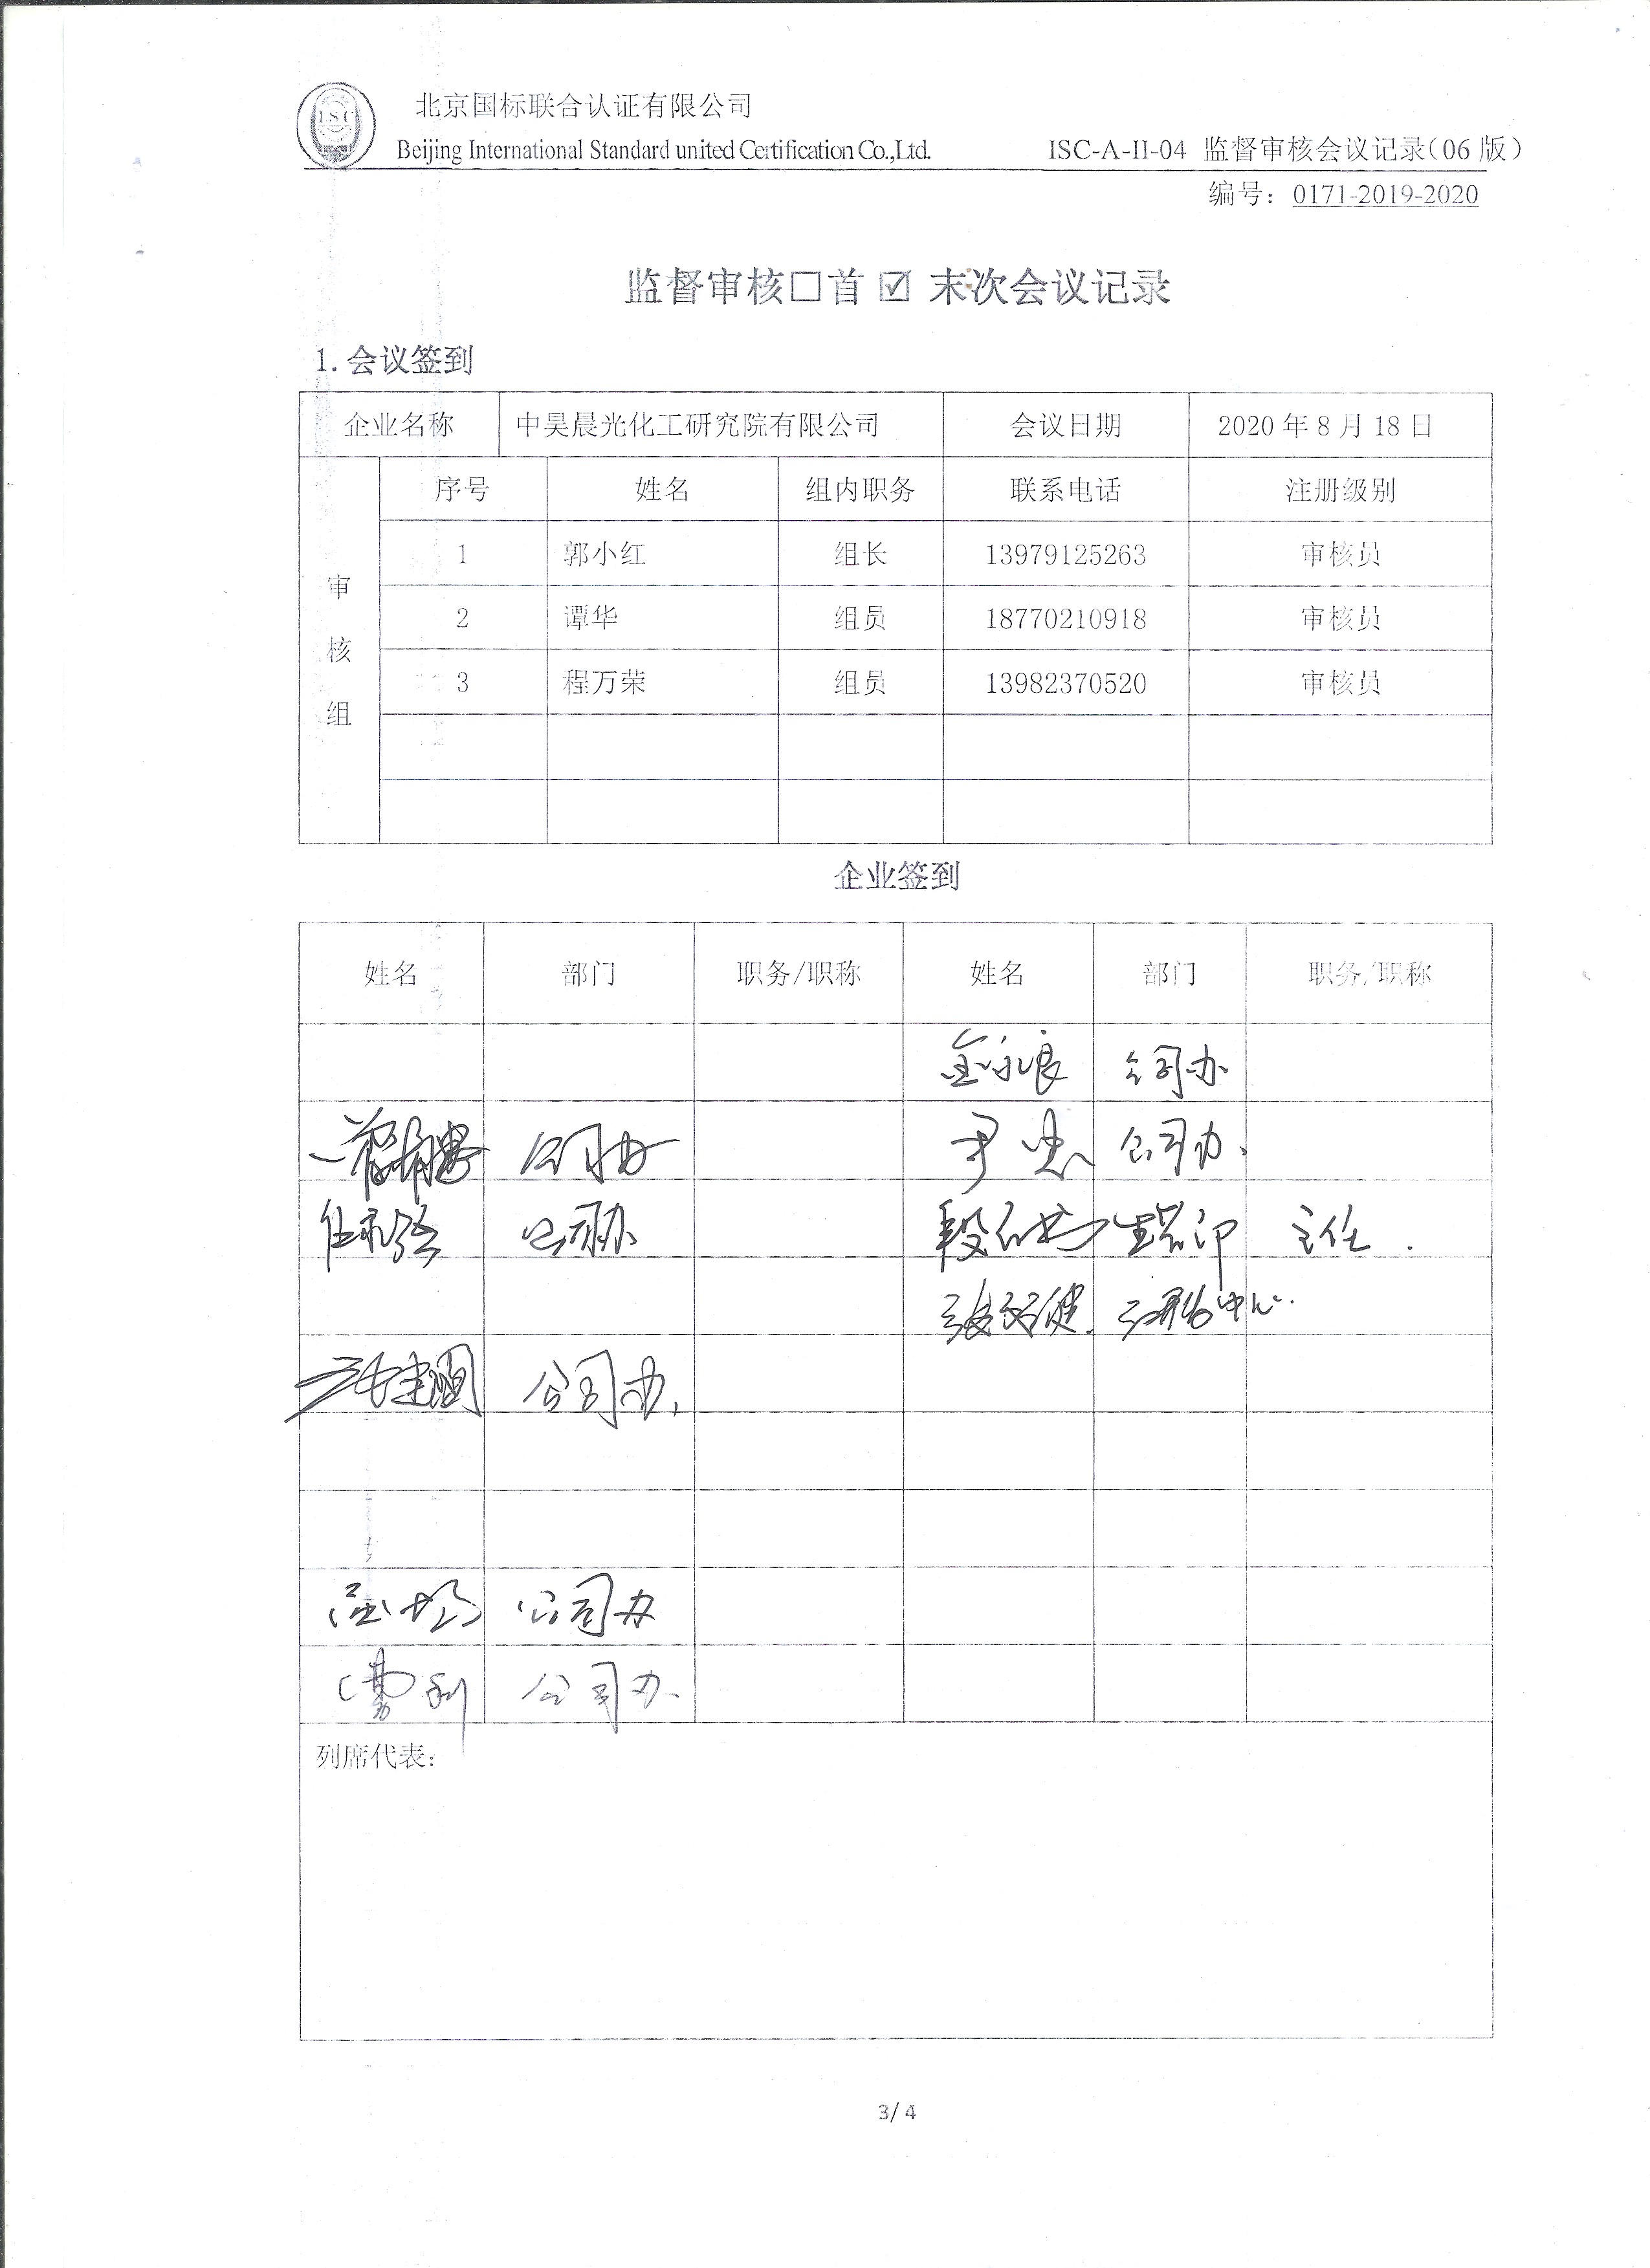 ISC
北京国标联合认证有限公司
Beijing International Standard united Certification Co.,Ltd.
ISC-A-II-04 监督审核会议记录（06 版）
编号：0171-2019-2020
监督审核□首 ☑ 末次会议记录
1.会议签到
企业名称 中昊晨光化工研究院有限公司 会议日期 2020 年 8 月 18 日
审核组
序号 姓名 组内职务 联系电话 注册级别
1 郭小红 组长 13979125263 审核员
2 谭华 组员 18770210918 审核员
3 程万荣 组员 13982370520 审核员
企业签到
姓名 部门 职务/职称 姓名 部门 职务/职称
公司办
公司办 尹忠 公司办、
公司办 主任.
中心
公司办、
公司办
公司办、
列席代表：
3/ 4